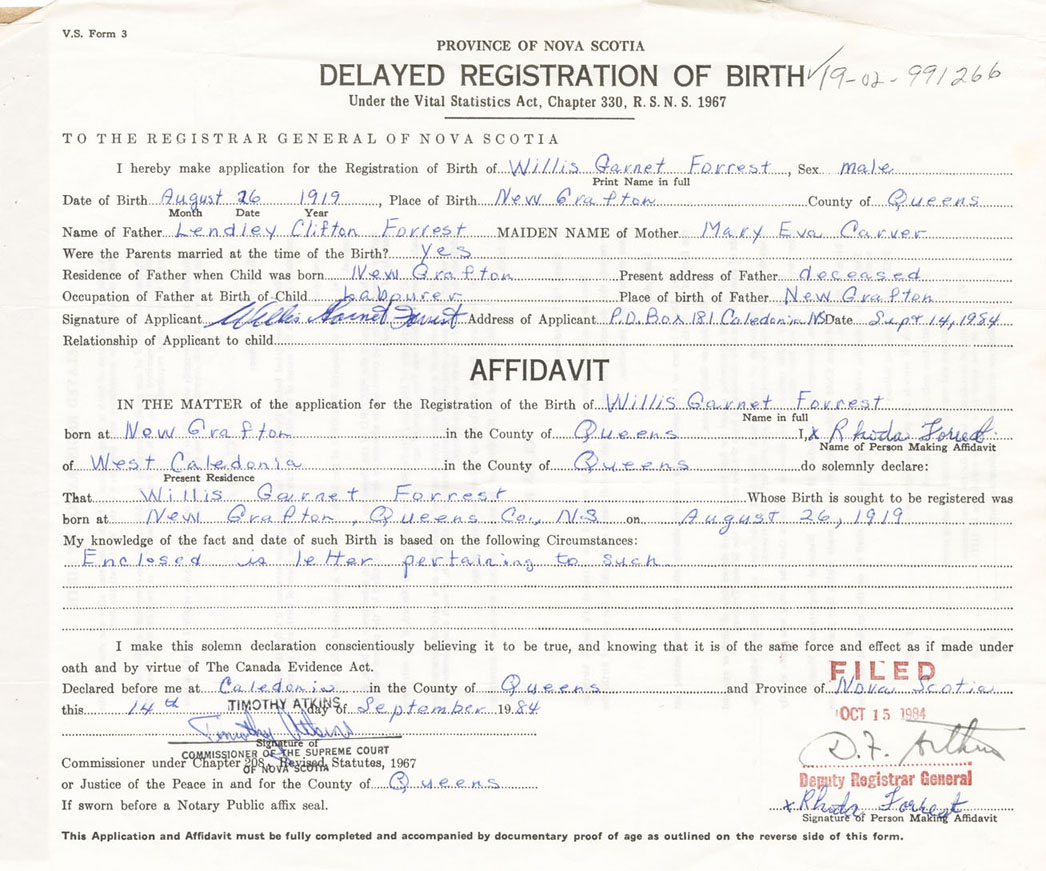 V.S. Form 3
PROVINCE OF NOVA SCOTIA
DELAYED REGISTRATION OF BIRTH 19-02-991266
Under the Vital Statistics Act, Chapter 330, R.S.N.S. 1967
TO THE REGISTRAR GENERAL OF NOVA SCOTIA
I hereby make application for the Registration of Birth of Willis Garnet Forrest, Sex male
Print Name in full
Date of Birth August 26 1919, Place of Birth New Grafton County of Queens
Month Date Year
Name of Father Lendley Clifton Forrest MAIDEN NAME of Mother Mary Eva Carver
Were the Parents married at the time of the Birth? Yes
Residence of Father when Child was born New Grafton Present address of Father deceased
Occupation of Father at Birth of Child Labourer Place of birth of Father New Grafton
Signature of Applicant Willis Garnet Forrest Address of Applicant P.O. Box 181 Caledonia NS Date Sept 14, 1984
Relationship of Applicant to child
AFFIDAVIT
IN THE MATTER of the application for the Registration of the Birth of Willis Garnet Forrest
Name in full
born at New Grafton in the County of Queens I, x Rhida Forrest
Name of Person Making Affidavit
of West Caledonia in the County of Queens do solemnly declare:
Present Residence
That Willis Garnet Forrest Whose Birth is sought to be registered was
born at New Grafton, Queens Co., N.S. on August 26, 1919
My knowledge of the fact and date of such Birth is based on the following Circumstances:
Enclosed is letter pertaining to such
I make this solemn declaration conscientiously believing it to be true, and knowing that it is of the same force and effect as if made under
oath and by virtue of The Canada Evidence Act.
FILED
Declared before me at Caledonia in the County of Queens and Province of Nova Scotia
this 14th day of September 1984
TIMOTHY ATKINS
OCT 15 1984
Timothy Atkins
D.F. Arthur
Signature of
COMMISSIONER OF THE SUPREME COURT
OF NOVA SCOTIA
Commissioner under Chapter 208, Revised Statutes, 1967
Deputy Registrar General
or Justice of the Peace in and for the County of Queens
x Rhida Forrest
If sworn before a Notary Public affix seal.
Signature of Person Making Affidavit
This Application and Affidavit must be fully completed and accompanied by documentary proof of age as outlined on the reverse side of this form.